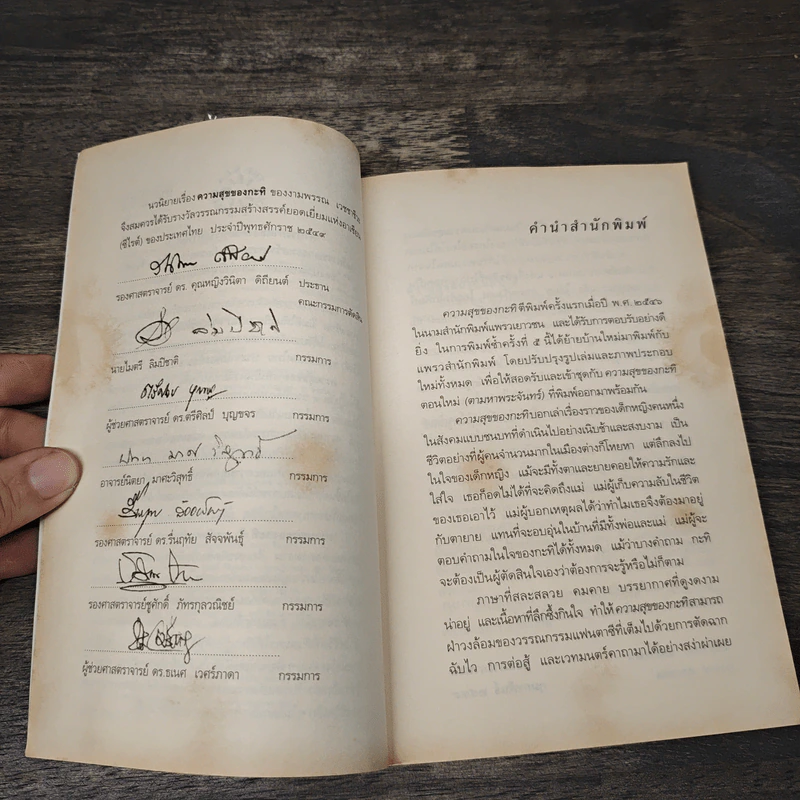 นวนิยายเรื่อง ความสุขของกะทิ ของงามพรรณ เวชชาชีวะ
จึงสมควรได้รับรางวัลวรรณกรรมสร้างสรรค์ยอดเยี่ยมแห่งอาเซียน
(ซีไรต์) ของประเทศไทย ประจำปีพุทธศักราช ๒๕๔๙
รองศาสตราจารย์ ดร. คุณหญิงวินิตา ดิถียนต์ ประธาน
คณะกรรมการตัดสิน
นายไมตรี ลิมปิชาติ กรรมการ
ผู้ช่วยศาสตราจารย์ ดร.ตรีศิลป์ บุญขจร กรรมการ
อาจารย์นิตยา มาศะวิสุทธิ์ กรรมการ
รองศาสตราจารย์ ดร.รื่นฤทัย สัจจพันธุ์ กรรมการ
รองศาสตราจารย์ชูศักดิ์ ภัทรกุลวณิชย์ กรรมการ
ผู้ช่วยศาสตราจารย์ ดร.ธเนศ เวศร์ภาดา กรรมการ
คำนำสำนักพิมพ์
ความสุขของกะทิ ตีพิมพ์ครั้งแรกเมื่อปี พ.ศ.๒๕๔๖
ในนามสำนักพิมพ์แพรวเยาวชน และได้รับการตอบรับอย่างดี
ยิ่ง ในการพิมพ์ซ้ำครั้งที่ ๕ นี้ได้ย้ายบ้านใหม่มาพิมพ์กับ
แพรวสำนักพิมพ์ โดยปรับปรุงรูปเล่มและภาพประกอบ
ใหม่ทั้งหมด เพื่อให้สอดรับและเข้าชุดกับ ความสุขของกะทิ
ตอนใหม่ (ตามหาพระจันทร์) ที่พิมพ์ออกมาพร้อมกัน
ความสุขของกะทิบอกเล่าเรื่องราวของเด็กหญิงคนหนึ่ง
ในสังคมแบบชนบทที่ดำเนินไปอย่างเนิบช้าและสงบงาม เป็น
ชีวิตอย่างที่ผู้คนจำนวนมากในเมืองต่างก็โหยหา แต่ลึกลงไป
ในใจของเด็กหญิง แม้จะมีทั้งตาและยายคอยให้ความรักและ
ใส่ใจ เธอก็อดไม่ได้ที่จะคิดถึงแม่ แม่ผู้เก็บความลับในชีวิต
ของเธอเอาไว้ แม่ผู้บอกเหตุผลได้ว่าทำไมเธอจึงต้องมาอยู่
กับตายาย แทนที่จะอบอุ่นในบ้านที่มีทั้งพ่อและแม่ แม่ผู้จะ
ตอบคำถามในใจของกะทิได้ทั้งหมด แม้ว่าบางคำถาม กะทิ
จะต้องเป็นผู้ตัดสินใจเองว่าต้องการจะรู้หรือไม่ก็ตาม
ภาษาที่สละสลวย คมคาย บรรยากาศที่ดูงดงาม
น่าอยู่ และเนื้อหาที่ลึกซึ้งกินใจ ทำให้ ความสุขของกะทิ สามารถ
ฝ่าวงล้อมของวรรณกรรมแฟนตาซีที่เต็มไปด้วยการตัดฉาก
ฉับไว การต่อสู้ และเวทมนตร์คาถามาได้อย่างสง่าผ่าเผย